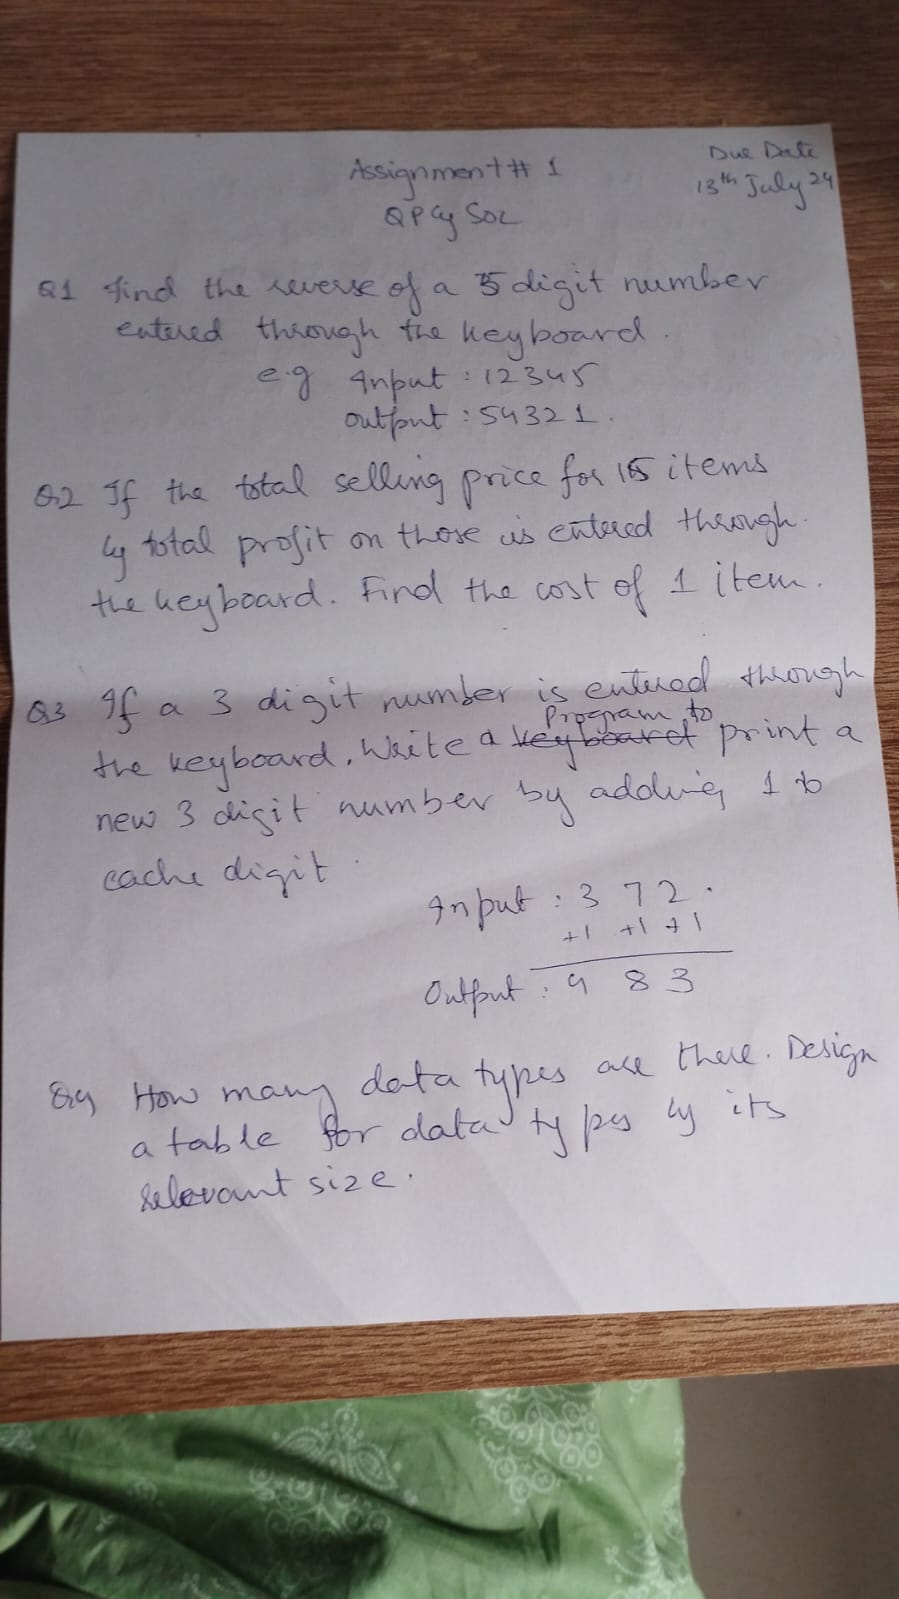 Assignment # 1
Due Date
13th July 24
QP & Sol
Q1 Find the reverse of a 5 digit number
entered through the keyboard.
e.g Input : 12345
Output : 54321.
Q2 If the total selling price for 15 items
& total profit on those is entered through
the keyboard. Find the cost of 1 item.
Q3 If a 3 digit number is entered through
the keyboard. Write a keyboard Program to print a
new 3 digit number by adding 1 to
cache digit.
Input : 3 7 2.
+1 +1 +1
Output : 4 8 3
Q4 How many data types are there. Design
a table for data types & its
relevant size.